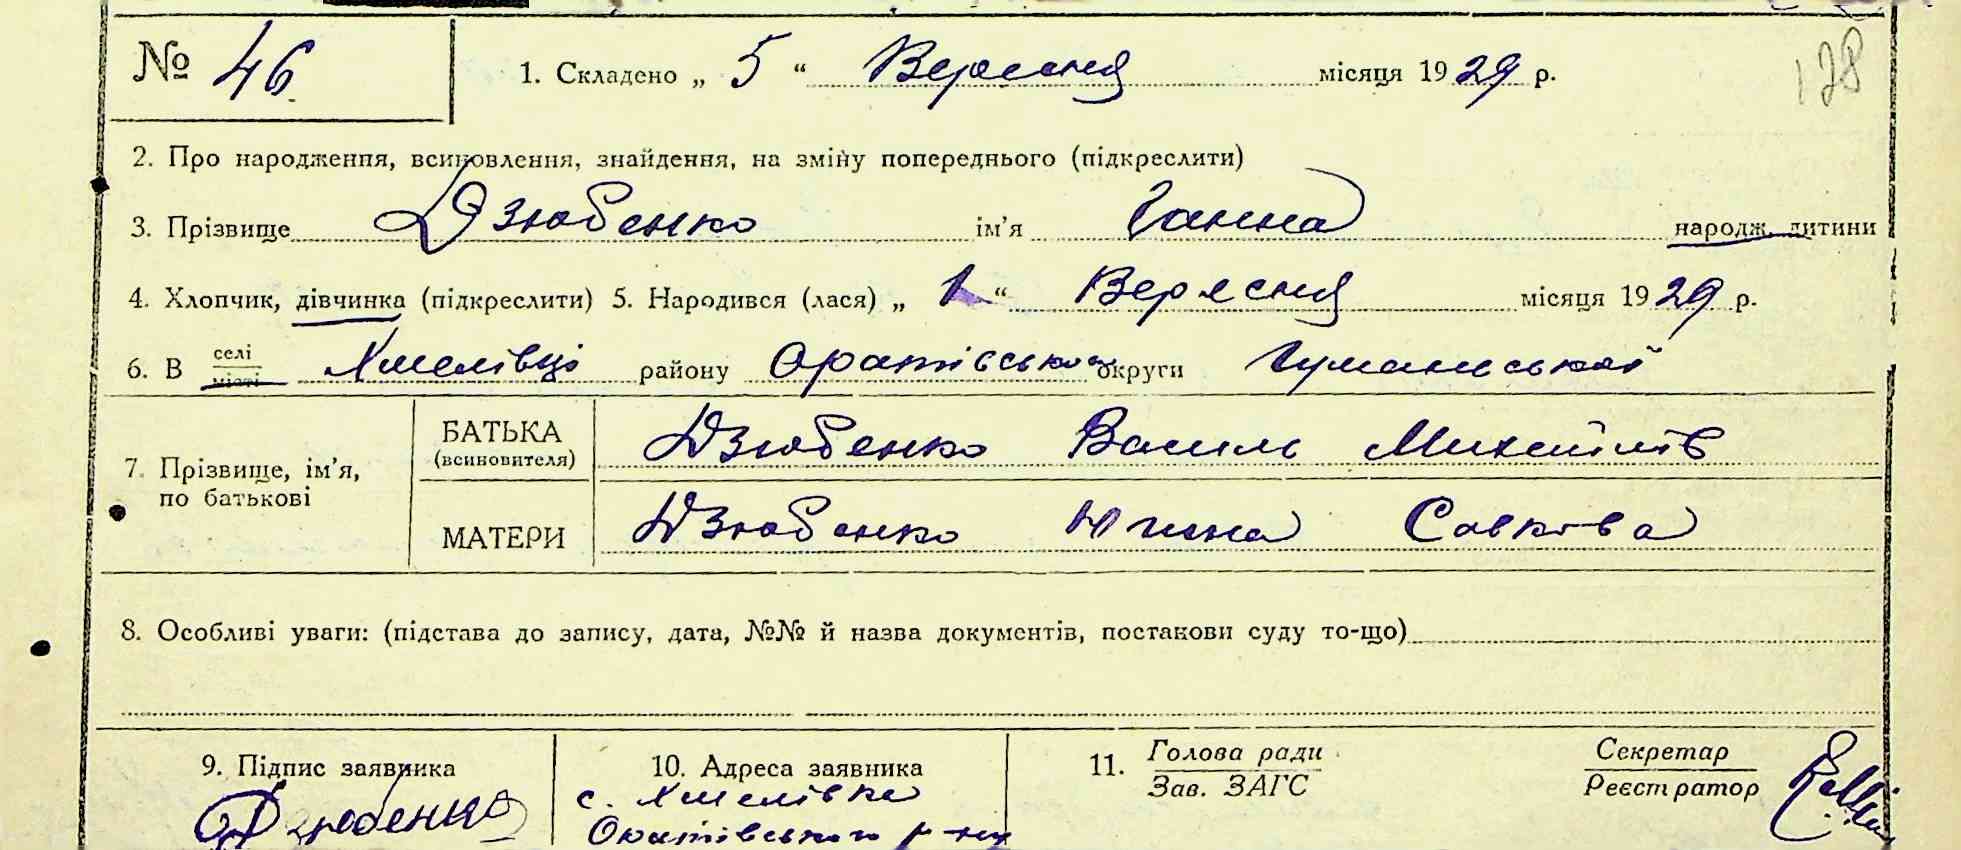 № 46 1. Складено „ 5 “ Вересня місяця 1929 р. 128
2. Про народження, всиновлення, знайдення, на зміну попереднього (підкреслити)
3. Прізвище Дзюбенко ім'я Ганна народж. дитини
4. Хлопчик, дівчинка (підкреслити) 5. Народився (лася) „ 1 “ Вересня місяця 1929 р.
6. В селі Хмелівці району Оратівського округи Гуманської
місті
7. Прізвище, ім'я, по батькові
БАТЬКА (всиновителя) Дзюбенко Василь Михайлів
МАТЕРИ Дзюбенко Савкова
8. Особливі уваги: (підстава до запису, дата, №№ й назва документів, постанови суду то-що)
9. Підпис заявника
Дзюбенко
10. Адреса заявника
с. Хмелівка
Оратівського р-ну
11. Голова ради
Зав. ЗАГС
Секретар
Реєстратор